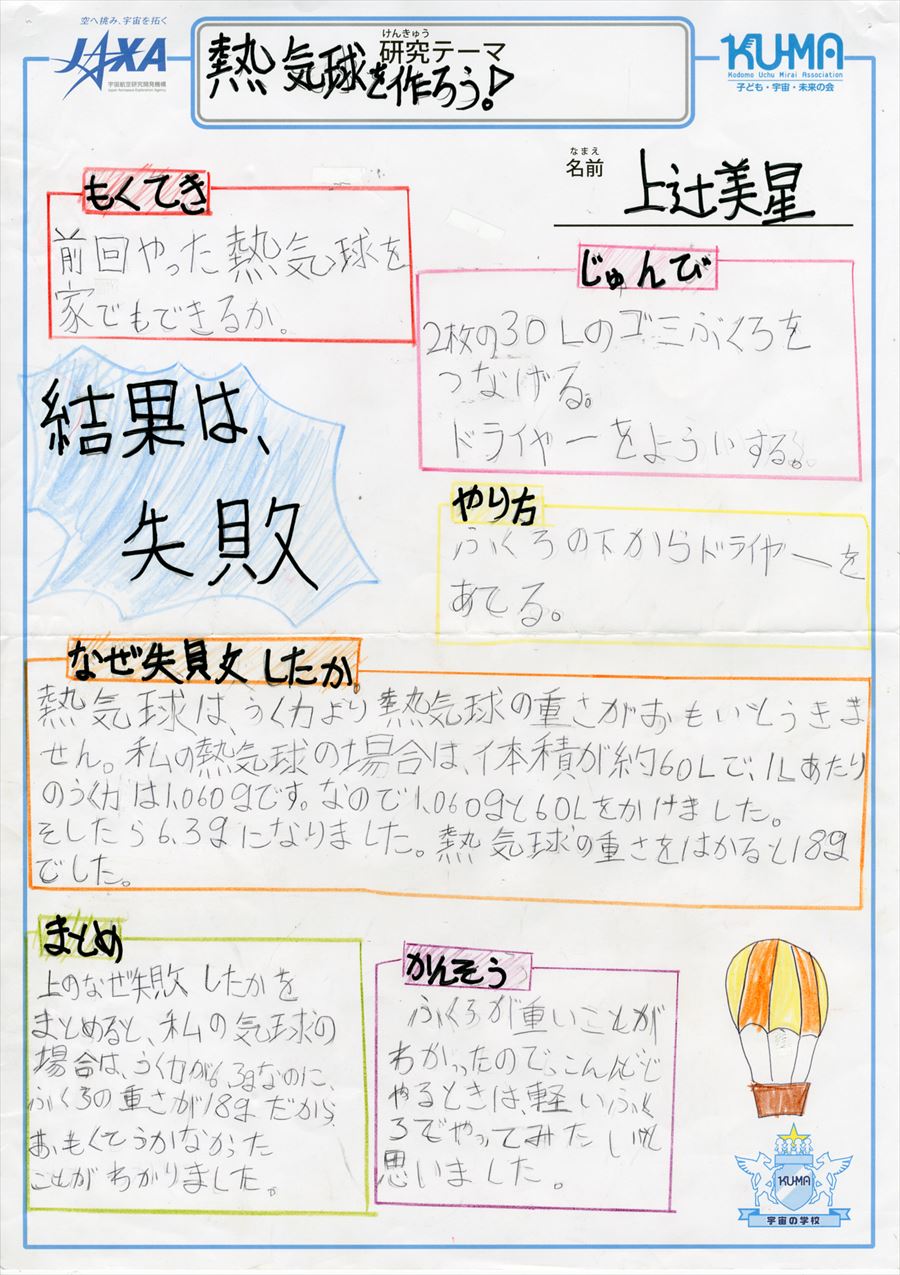 空へ挑み、宇宙を拓く
JAXA
宇宙航空研究開発機構
Japan Aerospace Exploration Agency
けんきゅう
研究テーマ
熱気球を作ろう!
KU-MA
Kodomo Uchu Mirai Association
子ども・宇宙・未来の会
なまえ
名前
上辻美星
もくてき
前回やった熱気球を
家でもできるか。
じゅんび
2枚の30Lのゴミぶくろを
つなげる。
ドライヤーをよういする。
結果は、
失敗
やり方
ふくろの下からドライヤーを
あてる。
なぜ失敗したか。
熱気球は、うく力より熱気球の重さがおもいとうきま
せん。私の熱気球の場合は、体積が約60Lで、1Lあたり
のうく力は1.060gです。なので1.060gと60Lをかけました。
そしたら6.3gになりました。熱気球の重さをはかると18g
でした。
まとめ
上のなぜ失敗したかを
まとめると、私の気球の
場合は、うく力が6.3gなのに、
ふくろの重さが18gだから、
おもくてうかなかった
ことがわかりました。
かんそう
ふくろが重いことが
わかったので、こんど
やるときは、軽いふく
ろでやってみたいと
思いました。
KU-MA
宇宙の学校